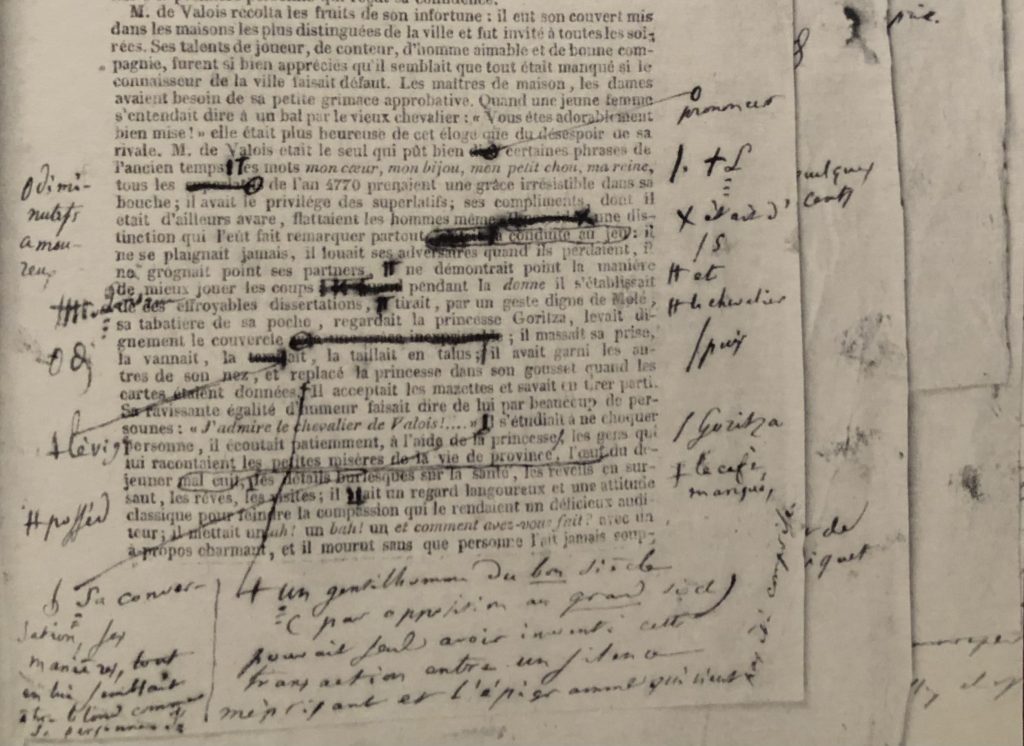 M. de Valois récolta les fruits de son infortune : il eut son couvert mis
dans les maisons les plus distinguées de la ville et fut invité à toutes les soi-
rées. Ses talents de joueur, de conteur, d'homme aimable et de bonne com-
pagnie, furent si bien appréciés qu'il semblait que tout était manqué si le
connaisseur de la ville faisait défaut. Les maîtres de maison, les dames
avaient besoin de sa petite grimace approbative. Quand une jeune femme
s'entendait dire à un bal par le vieux chevalier : « Vous êtes adorablement
bien mise! » elle était plus heureuse de cet éloge que du désespoir de sa
rivale. M. de Valois était le seul qui pût bien certaines phrases de
l'ancien temps es mots mon cœur, mon bijou, mon petit chou, ma reine,
tous les de l'an 1770 prenaient une grâce irrésistible dans sa
bouche; il avait le privilége des superlatifs; ses compliments, dont il
etait d'ailleurs avare, flattaient les hommes même une dis-
tinction qui l'eût fait remarquer partout conduite au jeu : il
ne se plaignait jamais, il louait ses adversaires quand ils perdaient, il
ne grognait point ses partners, ne démontrait point la manière
de mieux jouer les coups pendant la donne il s'établissait
de ces effroyables dissertations, tirait, par un geste digne de Molé,
sa tabatière de sa poche, regardait la princesse Goritza, levait di-
gnement le couvercle ; il massait sa prise,
la vannait, la ait, la taillait en talus; il avait garni les an-
tres de son nez, et replacé la princesse dans son gousset quand les
cartes étaient données. Il acceptait les mazettes et savait en tirer parti.
Sa ravissante égalité d'humeur faisait dire de lui par beaucoup de per-
sounes : « J'admire le chevalier de Valois!.... » Il s'étudiait à ne choquer
personne, il écoutait patiemment, à l'aide de la princesse, les gens qui
lui racontaient les petites misères de la vie de province, l'œuf du dé-
jeuner mal cuit, les détails burlesques sur la santé, les réveils en sur-
saut, les rêves, les visites; il ait un regard langoureux et une attitude
classique pour feindre la compassion qui le rendaient un délicieux audi-
teur; il mettait un ah! un bah! un et comment avez-vous fait? avec un
à-propos charmant, et il mourut sans que personne l'ait jamais soup-
dimi-
nutifs
amou-
reux
lévig
posséd
prononcer
quelques
était d'
et
le chevalier
puis
Goritza
le café
manqué,
Sa conver-
sation, ses
manières, tout
en lui semblait
être blond comme
sa personne
un gentilhomme du bon siècle
( par opposition au grand siècl )
pouvait seul avoir inventé cette
transaction entre un silence
méprisant et l'épigramme